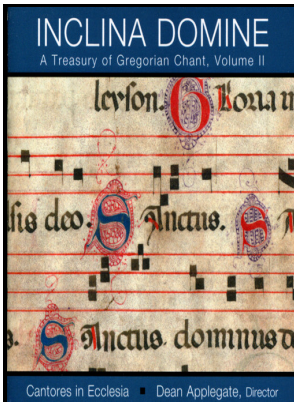 INCLINA DOMINE
A Treasury of Gregorian Chant, Volume II
leyson. Gloria in
sis deo. Sanctus. S
s. Sanctus. dominus d
Cantores in Ecclesia ■ Dean Applegate, Director